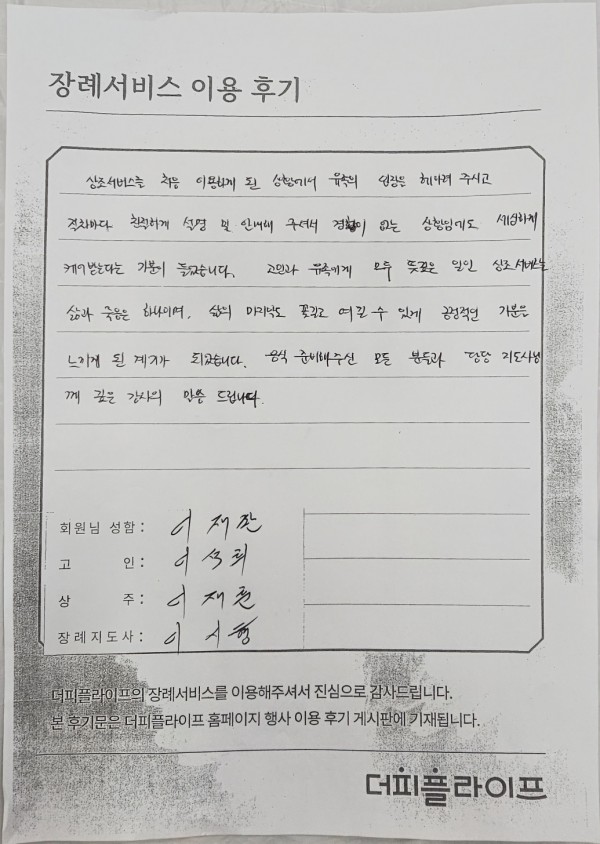 장례서비스 이용 후기
상조서비스를 처음 이용하게 된 상황에서 유족의 입장을 헤아려 주시고
격차마다 친절하게 설명 및 안내해 주셔서 경황이 없는 상황임에도 세심하게
케어받는다는 기분이 들었습니다. 고인과 유족에게 모두 뜻깊은 일인 상조서비스는
삶과 죽음은 하나이며, 삶의 마지막도 꽃길로 여길 수 있게 긍정적인 기분을
느끼게 된 계기가 되었습니다. 음식 준비해주신 모든 분들과 담당 지도사님
께 깊은 감사의 말씀 드립니다.
회원님 성함 : 이재
고 인 : 이석희
상 주 : 이재
장례지도사 : 이시형
더피플라이프의 장례서비스를 이용해주셔서 진심으로 감사드립니다.
본 후기문은 더피플라이프 홈페이지 행사 이용 후기 게시판에 기재됩니다.
더피플라이프